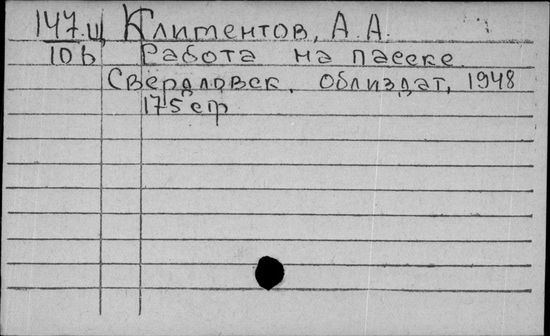 147.Щ Климентов, А. А.
10b Работа на пасеке
Свердловск, облиздат, 1948
175 стр